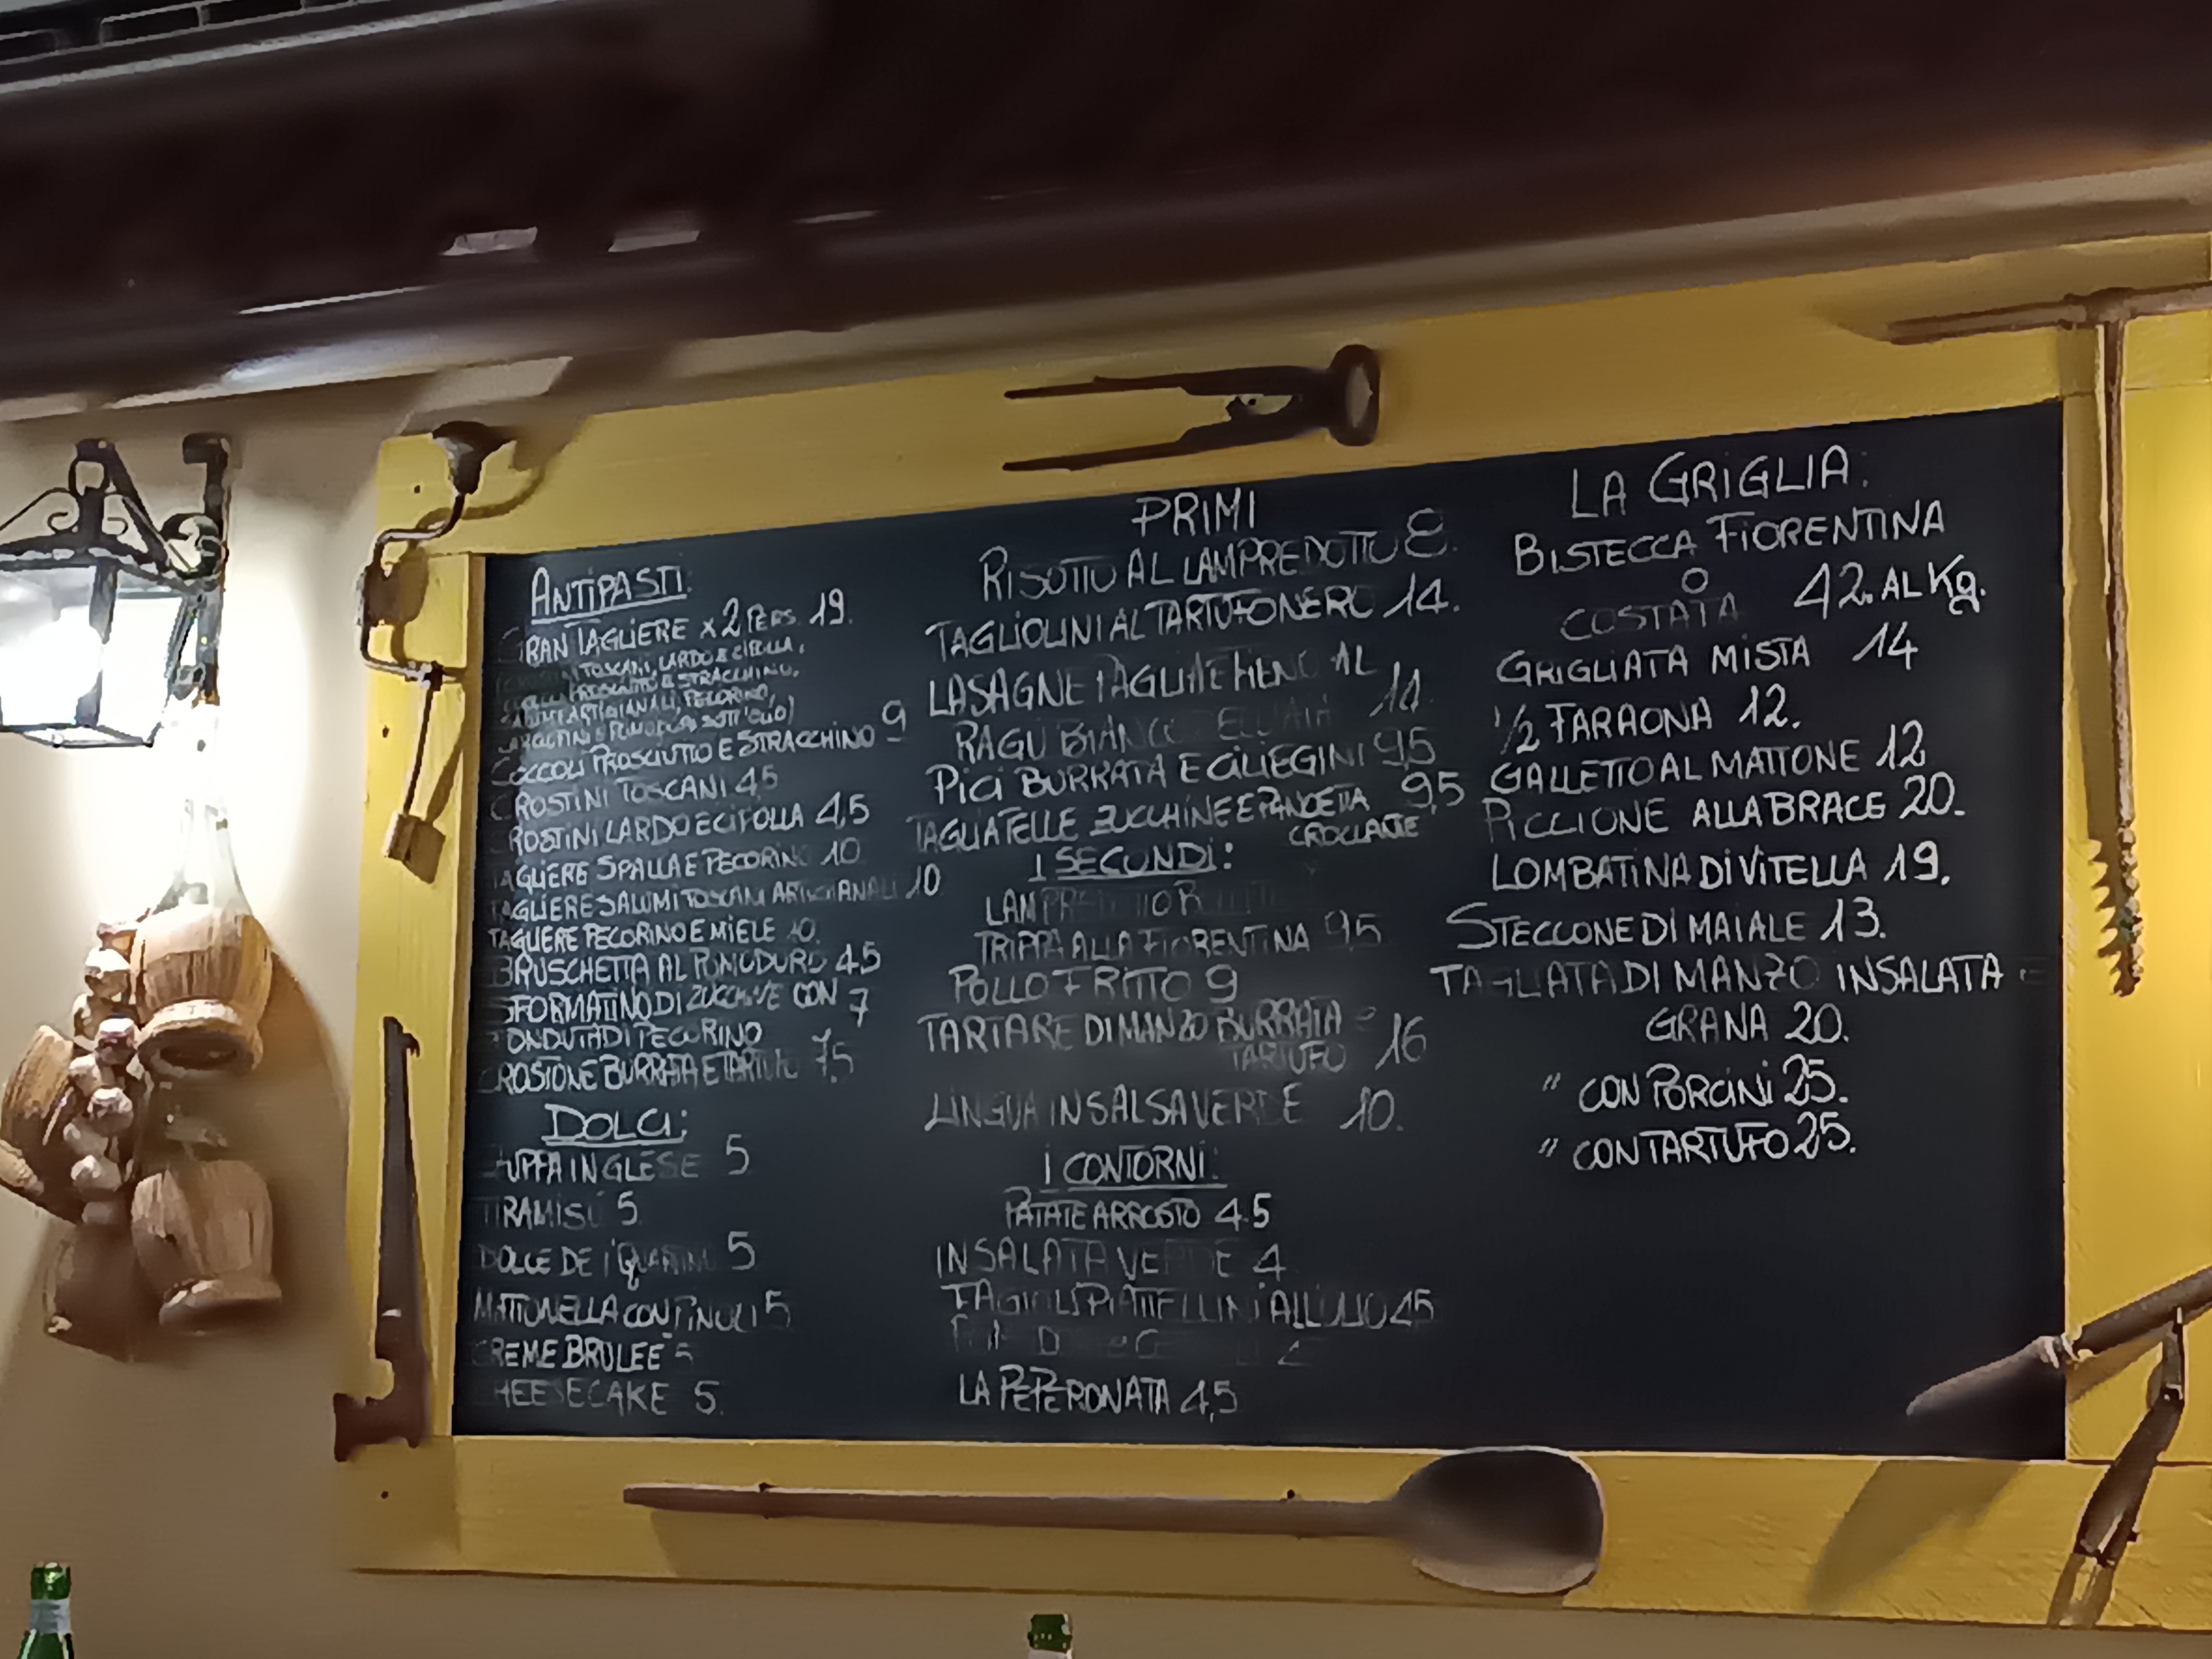 ANTIPASTI:
GRAN TAGLIERE x 2 PERS. 19.
TOSCANI, LARDO E CIPOLLA,
PROSCIUTTO E STRACCHINO,
SALUMI ARTIGIANALI, PECORINO,
POMODORI SOTT'OLIO)
COCCOLI PROSCIUTTO E STRACCHINO 9
CROSTINI TOSCANI 4,5
CROSTINI LARDO E CIPOLLA 4,5
TAGLIERE SPALLA E PECORINO 10
TAGLIERE SALUMI TOSCANI ARTIGIANALI 10
TAGLIERE PECORINO E MIELE 10.
BRUSCHETTA AL POMODORO 4,5
SFORMATINO DI ZUCCHINE CON 7
FONDUTA DI PECORINO
CROSTONE BURRATA E TARTUFO 7,5
DOLCI:
ZUPPA INGLESE 5
TIRAMISÙ 5
DOLCE DE I' 5
MATTONELLA CON PINOLI 5
CREME BRULEE 5
CHEESECAKE 5.
PRIMI
RISOTTO AL LAMPREDOTTO 8.
TAGLIOLINI AL TARTUFO NERO 14.
LASAGNE PAGLIA E FIENO AL
RAGU BIANCO 14.
PICI BURRATA E CILIEGINI 9,5
TAGLIATELLE ZUCCHINE E PANCETTA 9,5
CROCCANTE
I SECONDI:
LAMPREDOTTO
TRIPPA ALLA FIORENTINA 9,5
POLLO FRITTO 9
TARTARE DI MANZO BURRATA e
TARTUFO 16
LINGUA IN SALSA VERDE 10.
I CONTORNI:
PATATE ARROSTO 4.5
INSALATA VERDE 4
FAGIOLI PIATTELLINI ALL'OLIO 4,5
LA PEPERONATA 4,5
LA GRIGLIA:
BISTECCA FIORENTINA
O
COSTATA 42. AL Kg.
GRIGLIATA MISTA 14
1/2 FARAONA 12.
GALLETTO AL MATTONE 12
PICCIONE ALLA BRACE 20.
LOMBATINA DI VITELLA 19.
STECCONE DI MAIALE 13.
TAGLIATA DI MANZO INSALATA e
GRANA 20.
" CON PORCINI 25.
" CON TARTUFO 25.